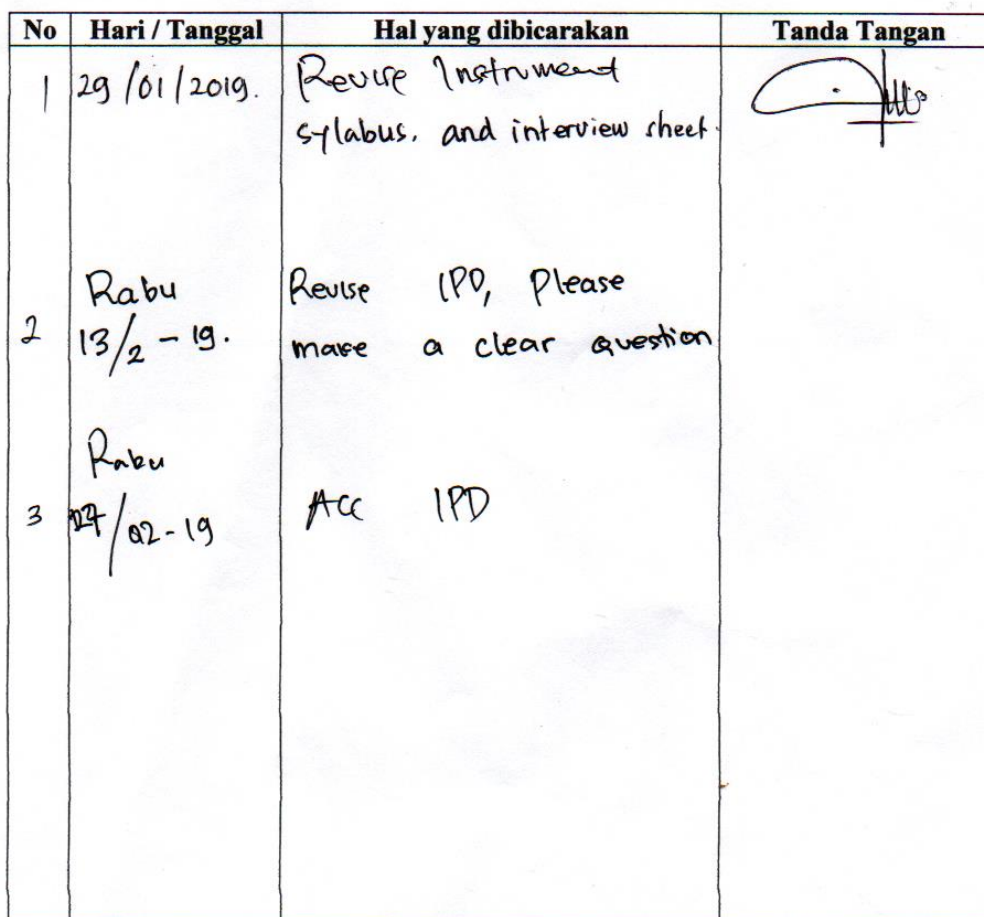 No Hari / Tanggal Hal yang dibicarakan Tanda Tangan
1 29/01/2019. Revise Instrument
sylabus, and interview sheet.
Rabu Revise IPD, Please
2 13/2 - 19. make a clear question
Rabu
3 27/02-19 Acc IPD